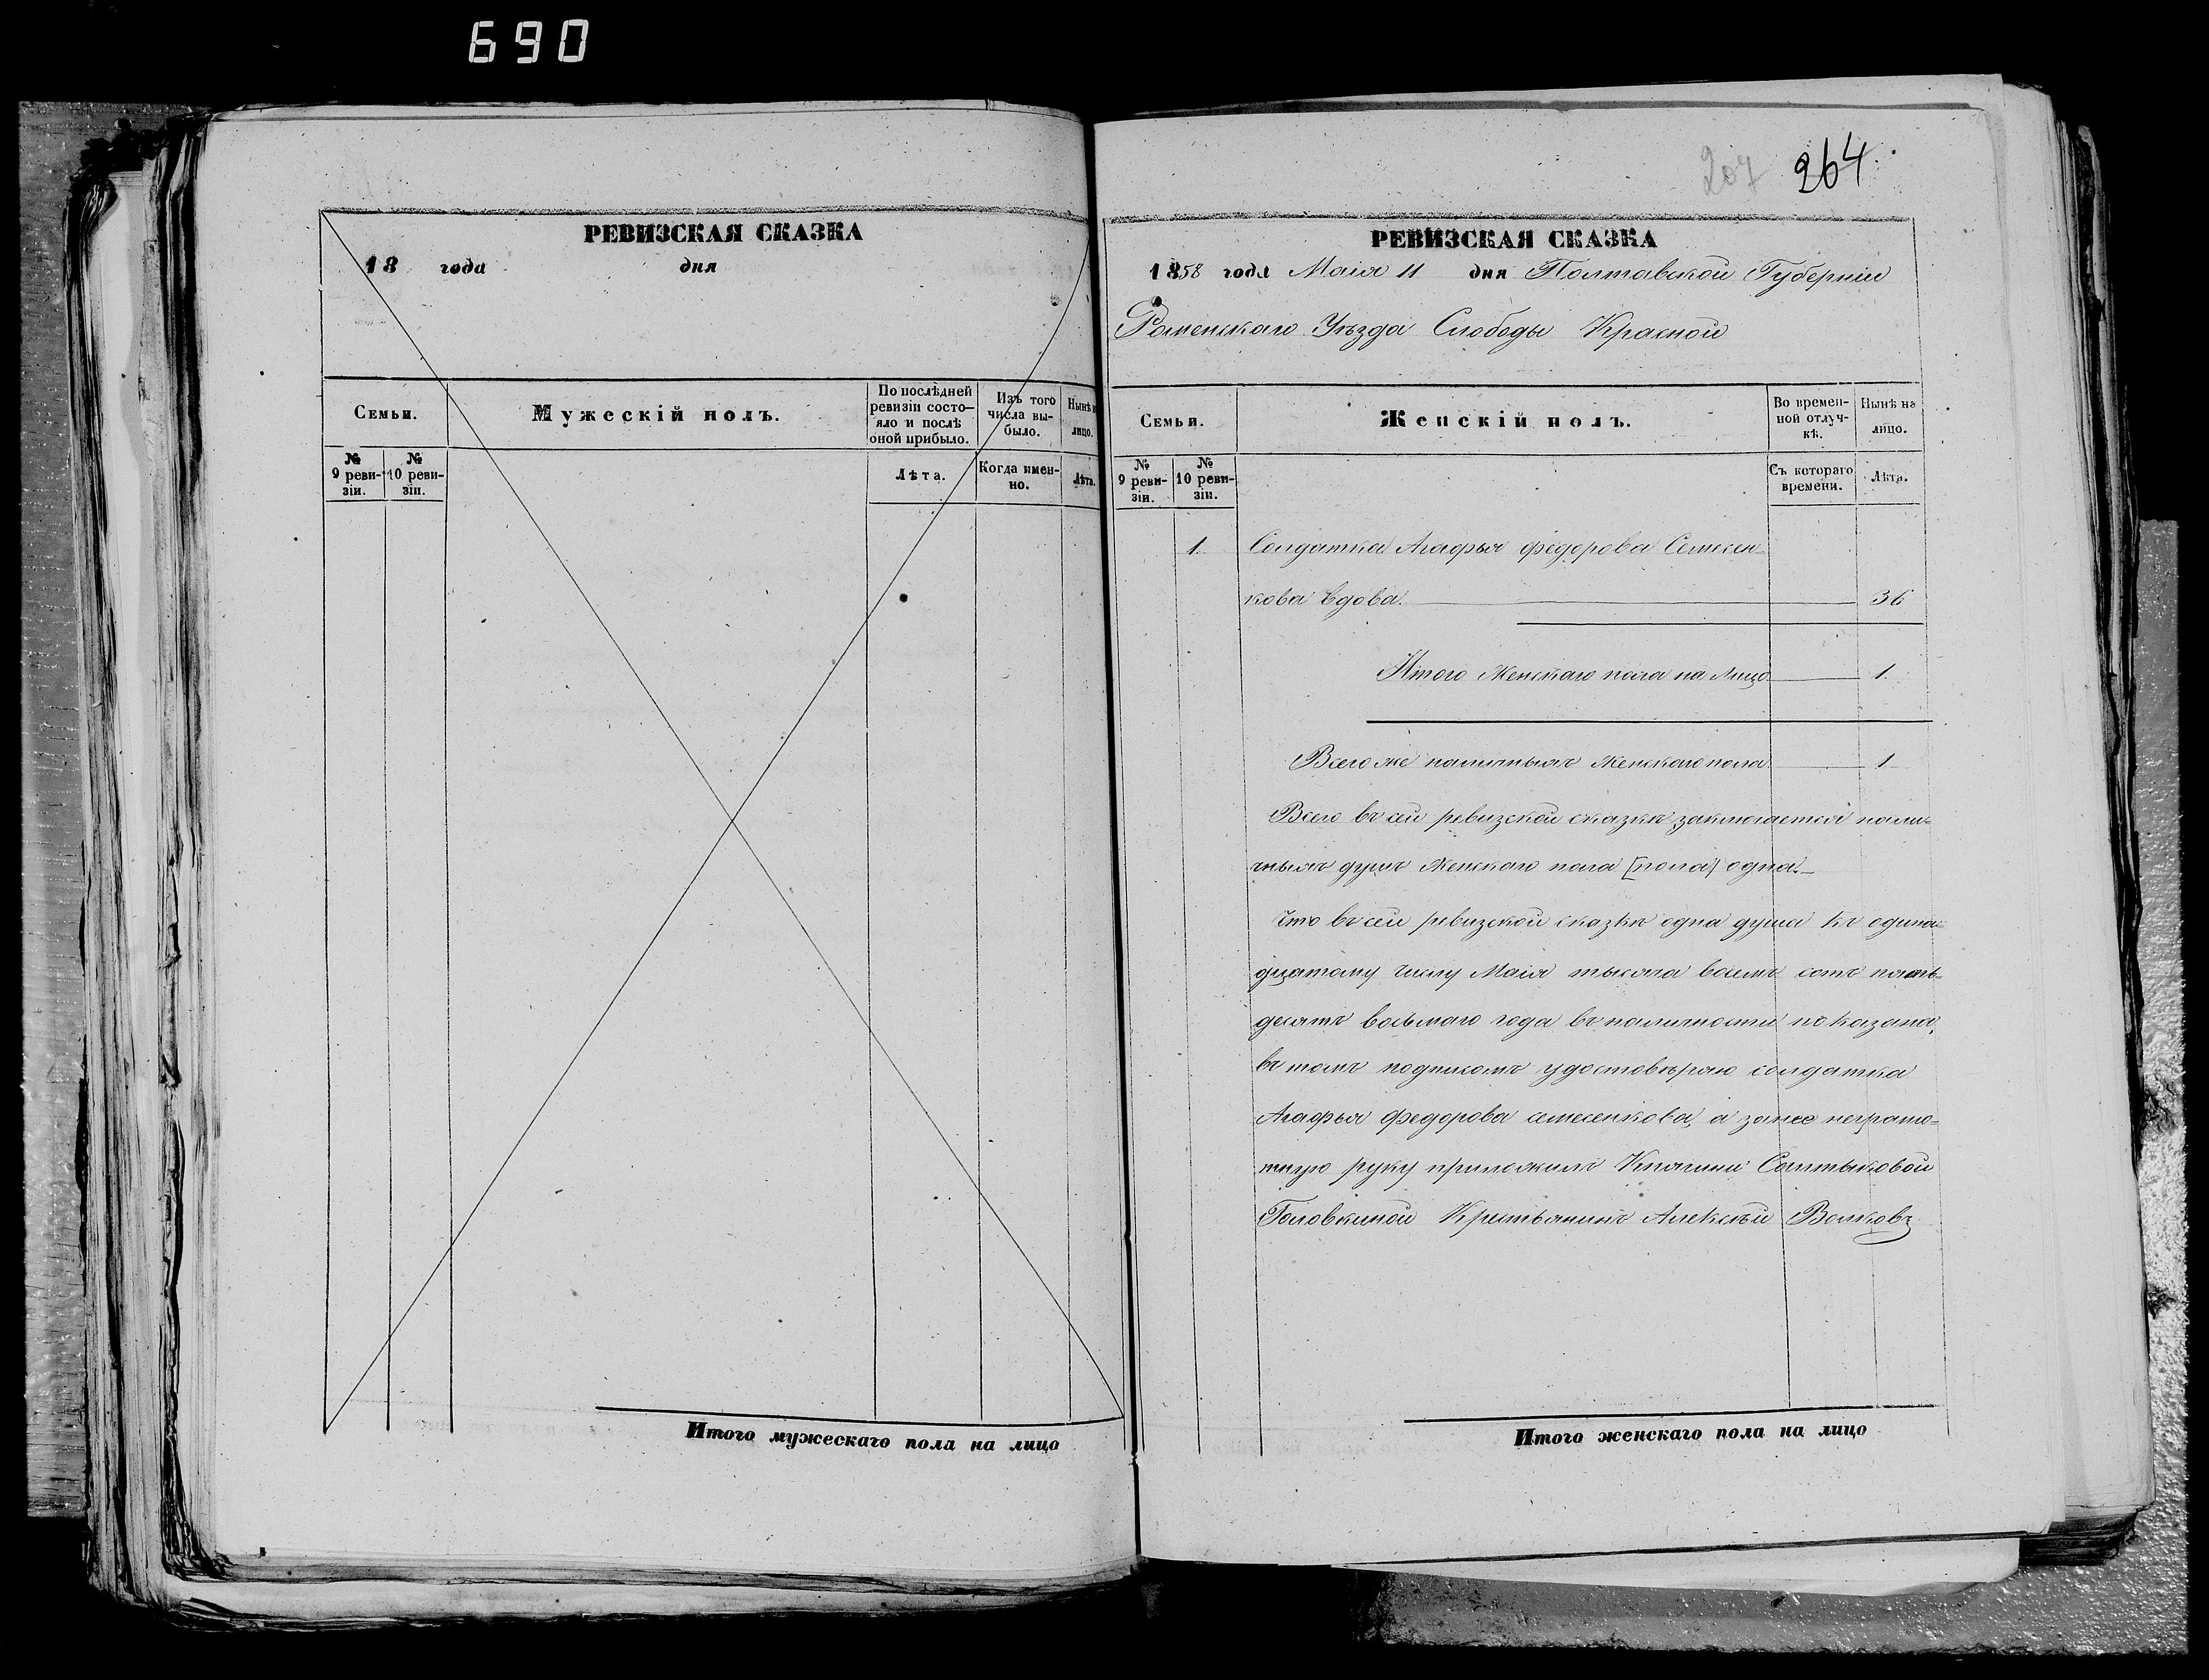 690
207 264.
РЕВИЗСКАЯ СКАЗКА
18 года дня
Семьи.
Мужескій полъ.
По послѣдней ревизіи состо-
яло и послѣ оной прибыло.
Изъ того числа вы-
было.
Нынѣ н
лицо.
№ 9 реви-
зіи.
№ 10 реви-
зіи.
Лѣта.
Когда имен-
но.
Лѣта.
Итого мужескаго пола на лицо
РЕВИЗСКАЯ СКАЗКА
1858 года Маія 11 дня Полтавской Губерніи
Роменскаго Уѣзда Слободы Красной
Семьи.
Женскій полъ.
Во времен-
ной отлуч-
кѣ.
Нынѣ на
лицо.
№ 9 реви-
зіи.
№ 10 реви-
зіи.
Съ котораго
времени.
Лѣта.
1. Солдатка Агафья Федорова Семесен
кова вдова. 36
Итого Женскаго пола на Лицо 1
Всего же наличныхъ Женскаго пола 1
Всего въ сей ревизской сказкѣ заключается нали-
чныхъ душъ Женскаго пола [пола] одна.
Что въ сей ревизской сказкѣ одна душа къ одина-
дцатому числу Маія тысяча восемъ сотъ пять-
десятъ восьмаго года въ наличности показана,
въ томъ подпискомъ удостовѣряю солдатка
Агафья Федорова семесенкова, а за нее неграмо-
тную руку приложилъ Княгини Салтыковой
Головкиной Крестьянинъ Алексѣй Волковъ
Итого женскаго пола на лицо